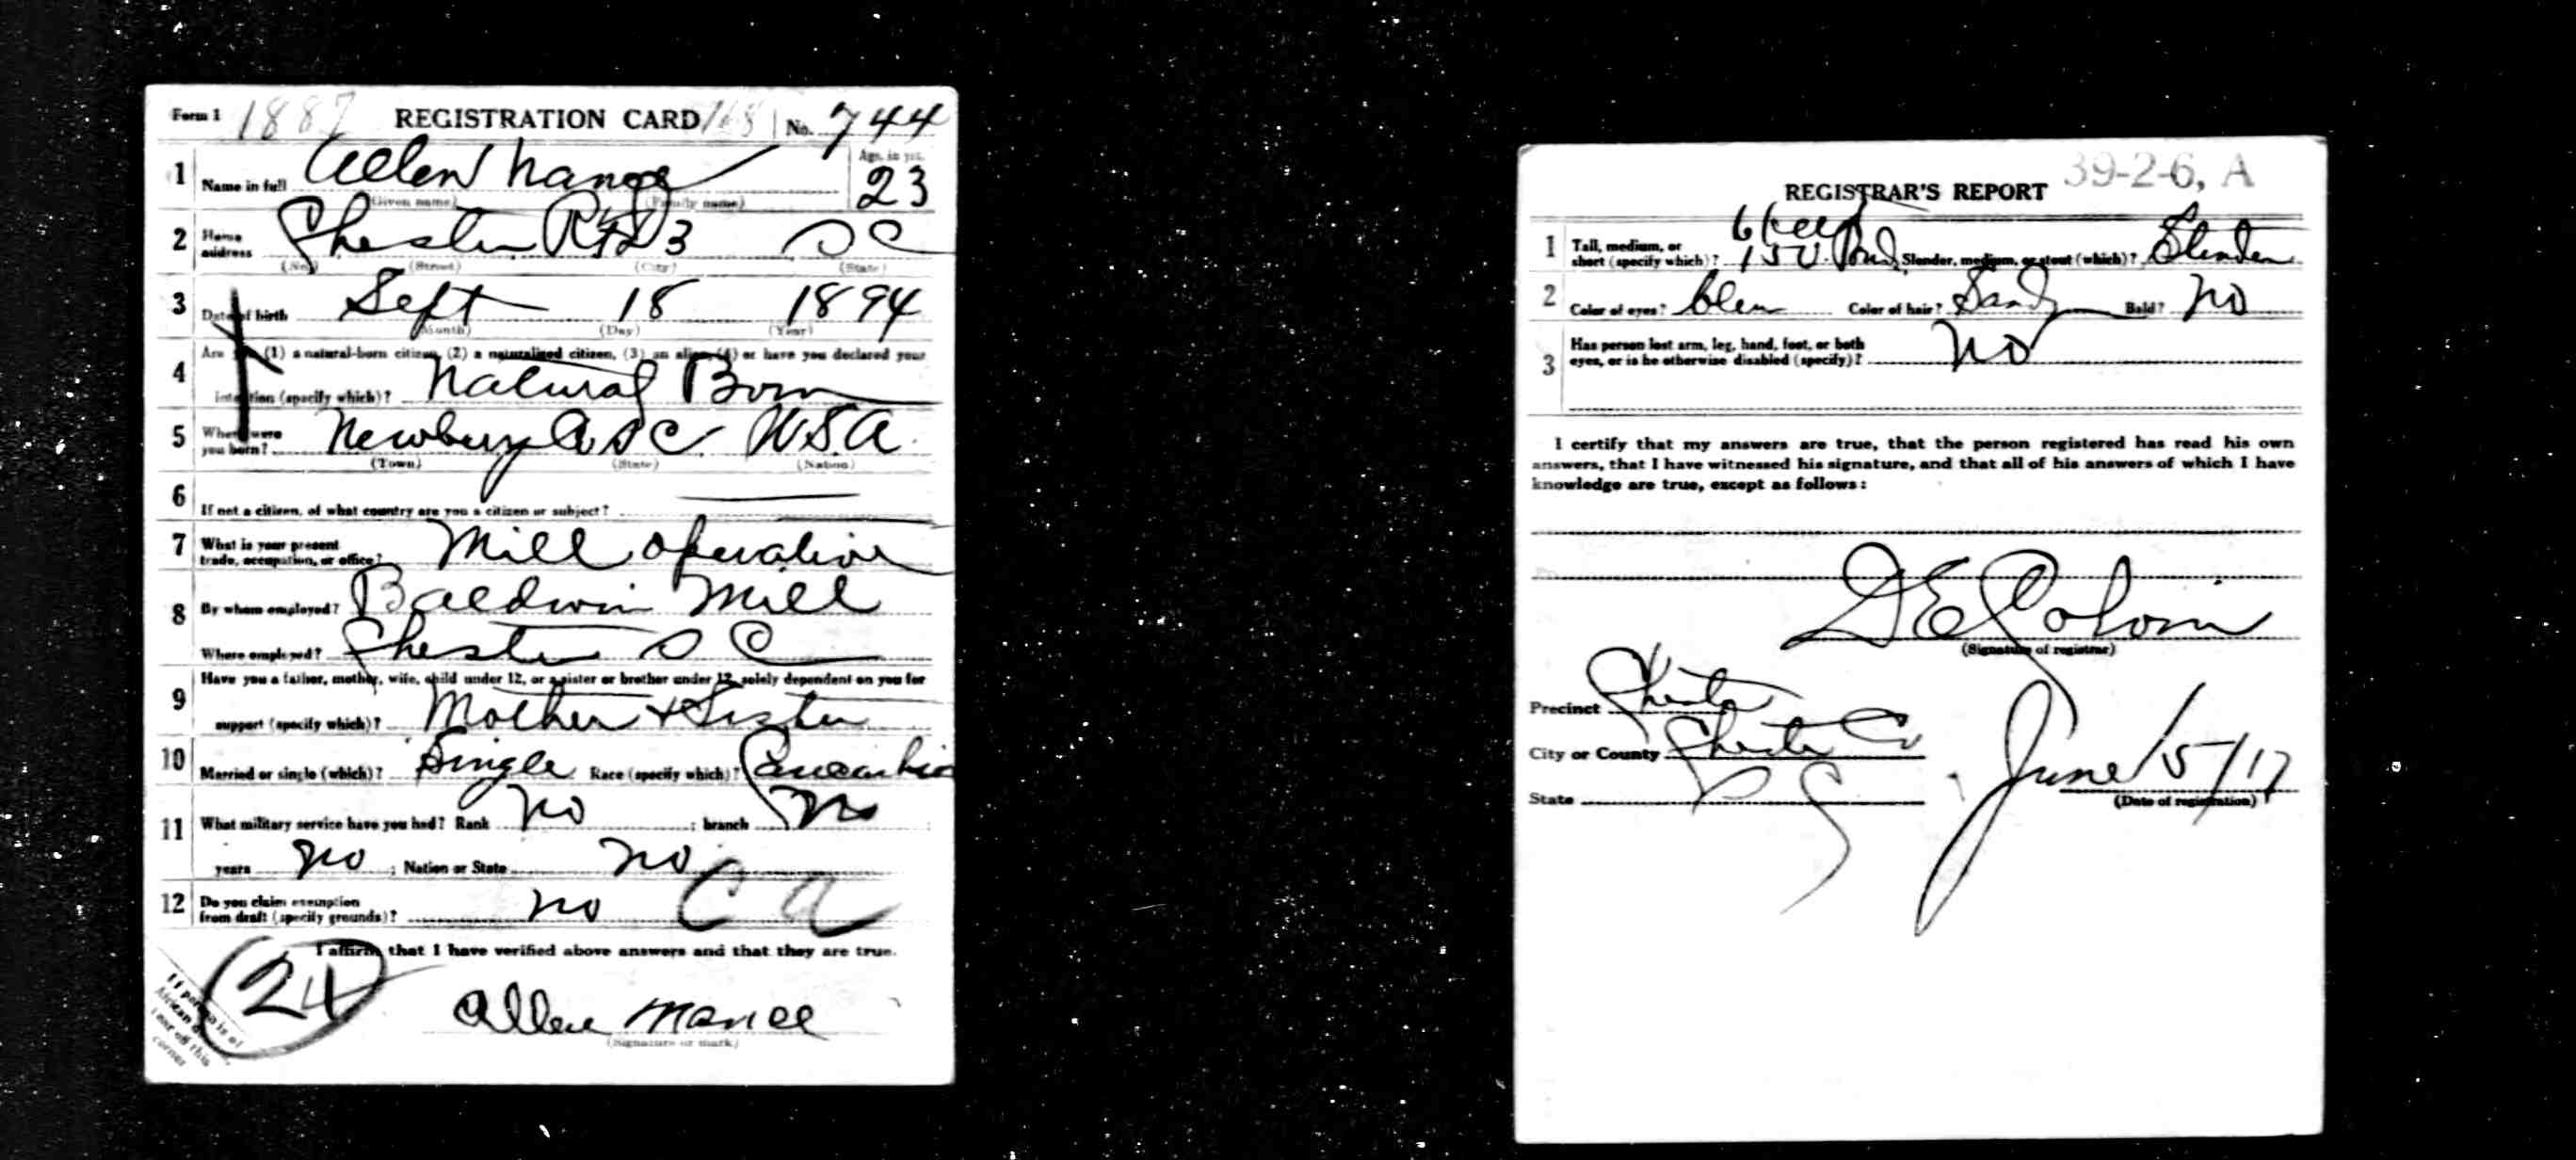 Form 1 1887 REGISTRATION CARD 168 No. 744
1 Name in full Allen Nance Age, in yrs. 23
(Given name) (Family name)
2 Home address Chester RFD 3 S C
(No.) (Street) (City) (State)
3 Date of birth Sept 18 1894
(Month) (Day) (Year)
4 Are you (1) a natural-born citizen, (2) a naturalized citizen, (3) an alien, (4) or have you declared your
intention (specify which)? Natural Born
5 Where were you born? Newbury S C. U.S.A.
(Town) (State) (Nation)
6 If not a citizen, of what country are you a citizen or subject?
7 What is your present trade, occupation, or office? Mill operative
8 By whom employed? Baldwin Mill
Where employed? Chester S C
9 Have you a father, mother, wife, child under 12, or a sister or brother under 12, solely dependent on you for
support (specify which)? Mother + Sister
10 Married or single (which)? Single Race (specify which)? Caucashion
11 What military service have you had? Rank No ; branch No
years No ; Nation or State No
12 Do you claim exemption from draft (specify grounds)? No C A
I affirm that I have verified above answers and that they are true.
24
Allen Mance
(Signature or mark)
If person is of
African
tear off this
corner
REGISTRAR'S REPORT 39-2-6, A
6 feet
1 Tall, medium, or short (specify which)? 150 Slender, medium, or stout (which)? Slender
2 Color of eyes? Blue Color of hair? Sandy Bald? No
3 Has person lost arm, leg, hand, foot, or both eyes, or is he otherwise disabled (specify)? No
I certify that my answers are true, that the person registered has read his own
answers, that I have witnessed his signature, and that all of his answers of which I have
knowledge are true, except as follows:
D E Colvin
(Signature of registrar)
Precinct Chester
City or County Chester Co
State S C
June / 5 / 17
(Date of registration)